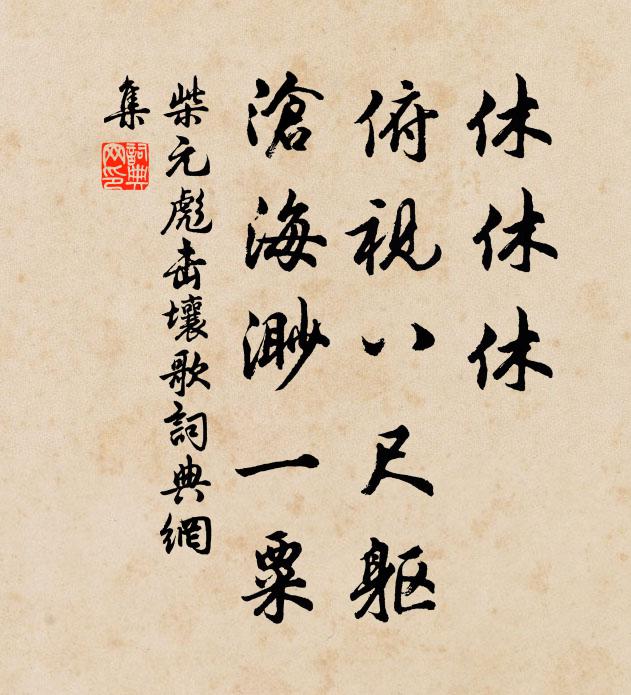 休休休
俯視八尺軀
滄海渺一粟
柴元彪击壤歌詞典網
集
詞典
网印